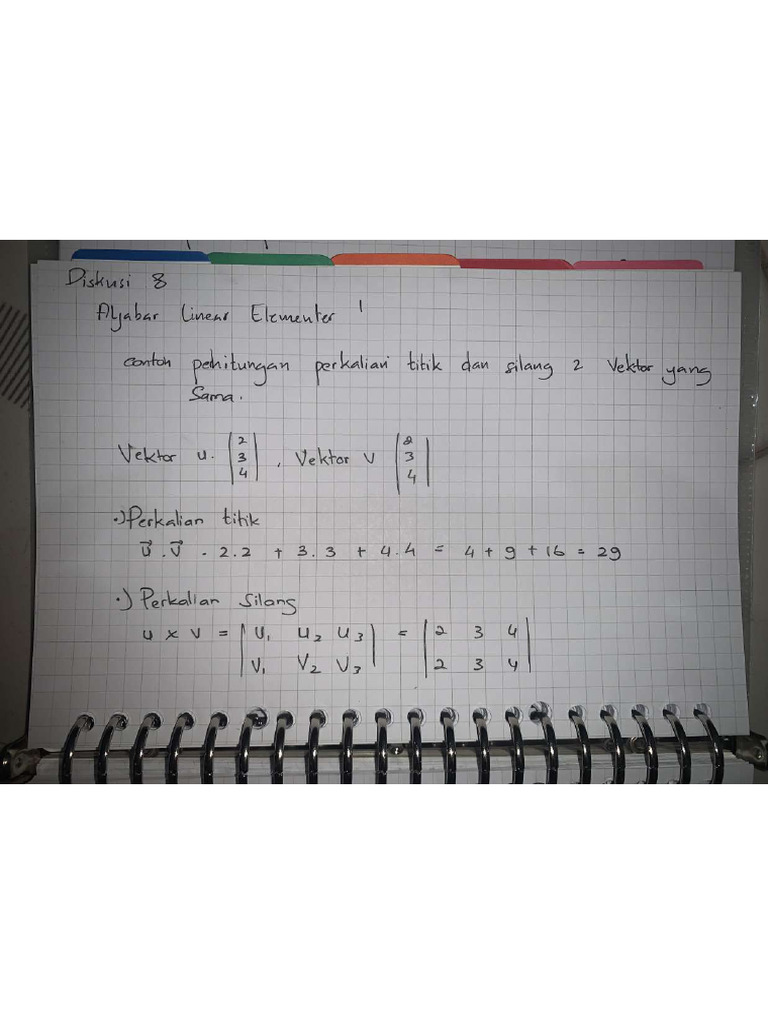 Diskusi 8
Aljabar Linear Elementer 1
contoh pehitungan perkalian titik dan silang 2 Vektor yang
Sama.
Vektor u. |2 3 4| , Vektor v |2 3 4|
·) Perkalian titik
u⃗ . v⃗ - 2.2 + 3.3 + 4.4 = 4 + 9 + 16 = 29
·) Perkalian Silang
u x v = |U₁ U₂ U₃| = |2 3 4|
|V₁ V₂ V₃| |2 3 4|